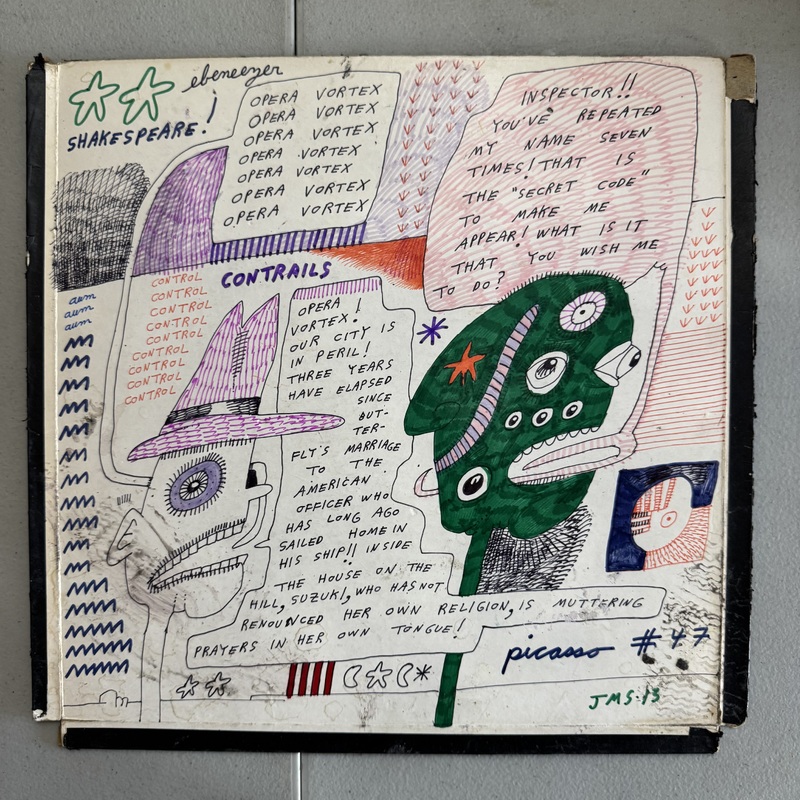 ebeneezer
SHAKESPEARE!
OPERA VORTEX
OPERA VORTEX
OPERA VORTEX
OPERA VORTEX
OPERA VORTEX
OPERA VORTEX
OPERA VORTEX
INSPECTOR!!
YOU'VE REPEATED
MY NAME SEVEN
TIMES! THAT IS
THE "SECRET CODE"
TO MAKE ME
APPEAR! WHAT IS IT
THAT YOU WISH ME
TO DO?
CONTRAILS
aum
aum
aum
CONTROL
CONTROL
CONTROL
CONTROL
CONTROL
CONTROL
CONTROL
CONTROL
CONTROL
OPERA
VORTEX!
OUR CITY IS
IN PERIL!
THREE YEARS
HAVE ELAPSED
SINCE
BUT-
TER-
FLY'S MARRIAGE
TO THE
AMERICAN
OFFICER WHO
HAS LONG AGO
SAILED HOME IN
HIS SHIP!! INSIDE
THE HOUSE ON THE
HILL, SUZUKI, WHO HAS NOT
RENOUNCED HER OWN RELIGION, IS MUTTERING
PRAYERS IN HER OWN TONGUE!
picasso #47
JMS·13